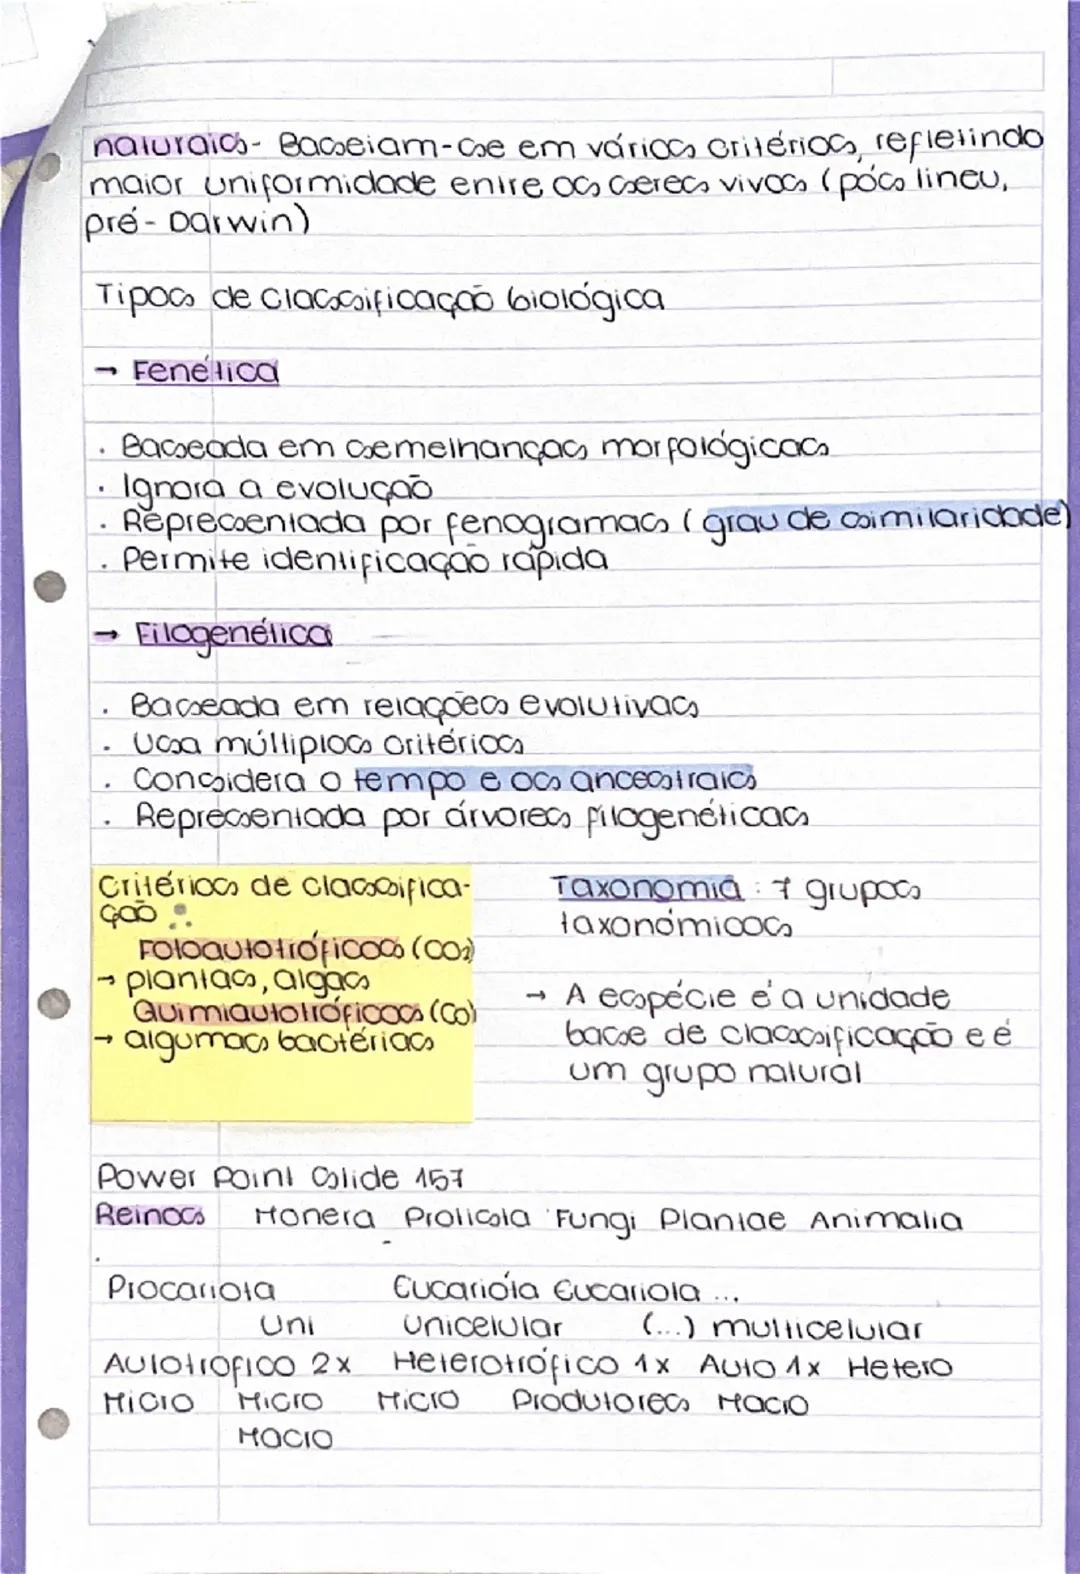 naturais - Baseiam-se em vários critérios, refletindo
maior uniformidade entre os seres vivos (pós lineu,
pré-Darwin)
Tipos de classificação biológica
→ Fenética
. Baseada em semelhanças morfológicas
. Ignora a evolução
. Representada por fenogramas (grau de similaridade)
. Permite identificação rápida
→ Filogenética
. Baseada em relações evolutivas
. Usa múltiplos critérios
. Considera o tempo e os ancestrais
. Representada por árvores filogenéticas
Critérios de classifica-
ção :
Fotoautotróficos (CO2)
→ plantas, algas
Quimiautotróficos (Co)
→ algumas bactérias
Taxonomia : 7 grupos
taxonómicos
→ A espécie é a unidade
base de classificação e é
um grupo natural
Power Point Slide 157
Reinos Monera Protista Fungi Plantae Animalia
Procariota Eucarióta Eucariota ...
Uni Unicelular (...) multicelular
Autotrofico 2x Heterotrófico 1x Auto 1x Hetero
Micro Micro Micro Produtores Macro
Macro